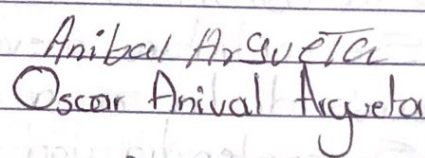 Anibal Argueta
Oscar Anival Argueta